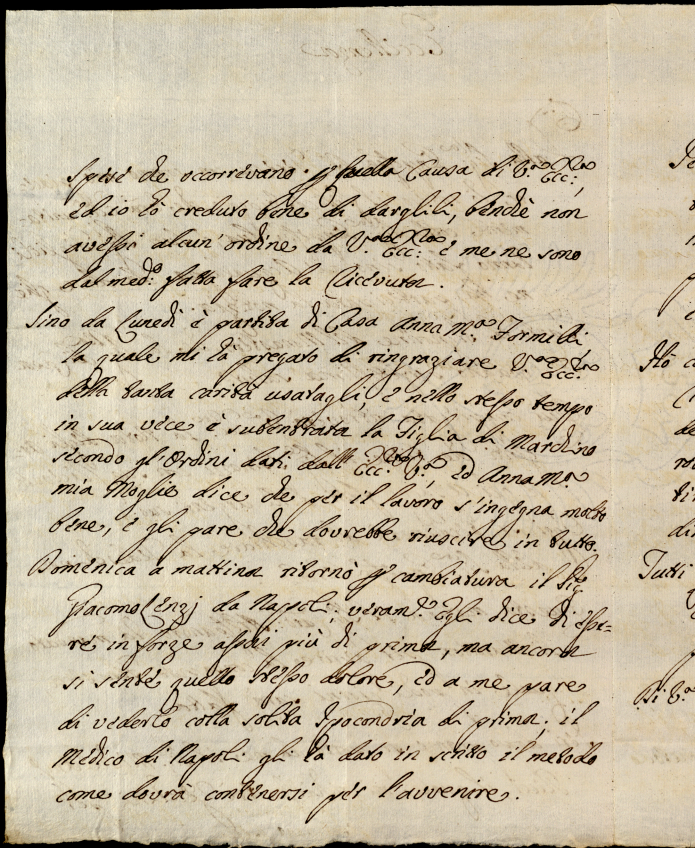 spese che occorrevano p quella Causa di V.ra Ecc.za,
ed io hò creduto bene di darglili, benchè non
avessi alcun'ordine da V.ra Ecc.za e me ne sono
dal med.o fatta fare la Ricevuta.
Sino da Lunedì è partita di Casa Anna M.a Formilli
la quale mi hà pregato di ringraziare V.ra Ecc.za
della tanta carità usatagli, e nello stesso tempo
in sua vece è subentrata la Figlia di Marchino
secondo gl'Ordini dati dall' Ecc.za V.ra, ed Anna M.a
mia Moglie dice che per il lavoro s'ingegna molto
bene, e gli pare che dovrebbe riuscire in tutto.
Domenica a mattina ritornò p cambiatura il Sig.
Giacomo Lenzj da Napoli; Egli dice di esse=
re in forze assai più di prima, ma ancora
si sente quello stesso dolore, ed a me pare
di vederlo colla solita Ipocondria di prima; il
Medico di Napoli gli hà dato in scritto il metodo
come dovrà contenersi per l'avvenire.
Hò
Tutti
Di V.ra